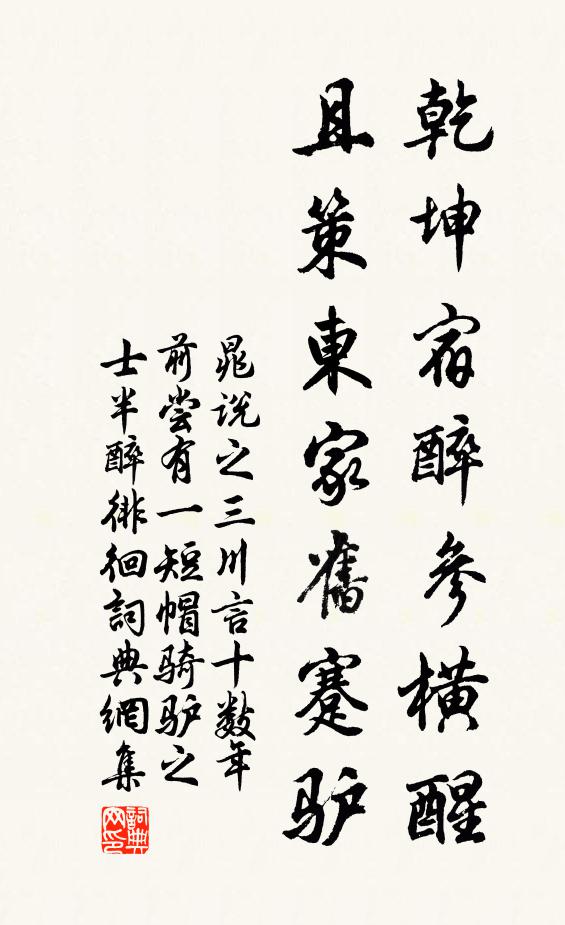 乾坤宿醉參橫醒
且策東家舊蹇驴
晁说之三川言十数年
前尝有一短帽骑驴之
士半醉徘徊詞典網集
詞典網印